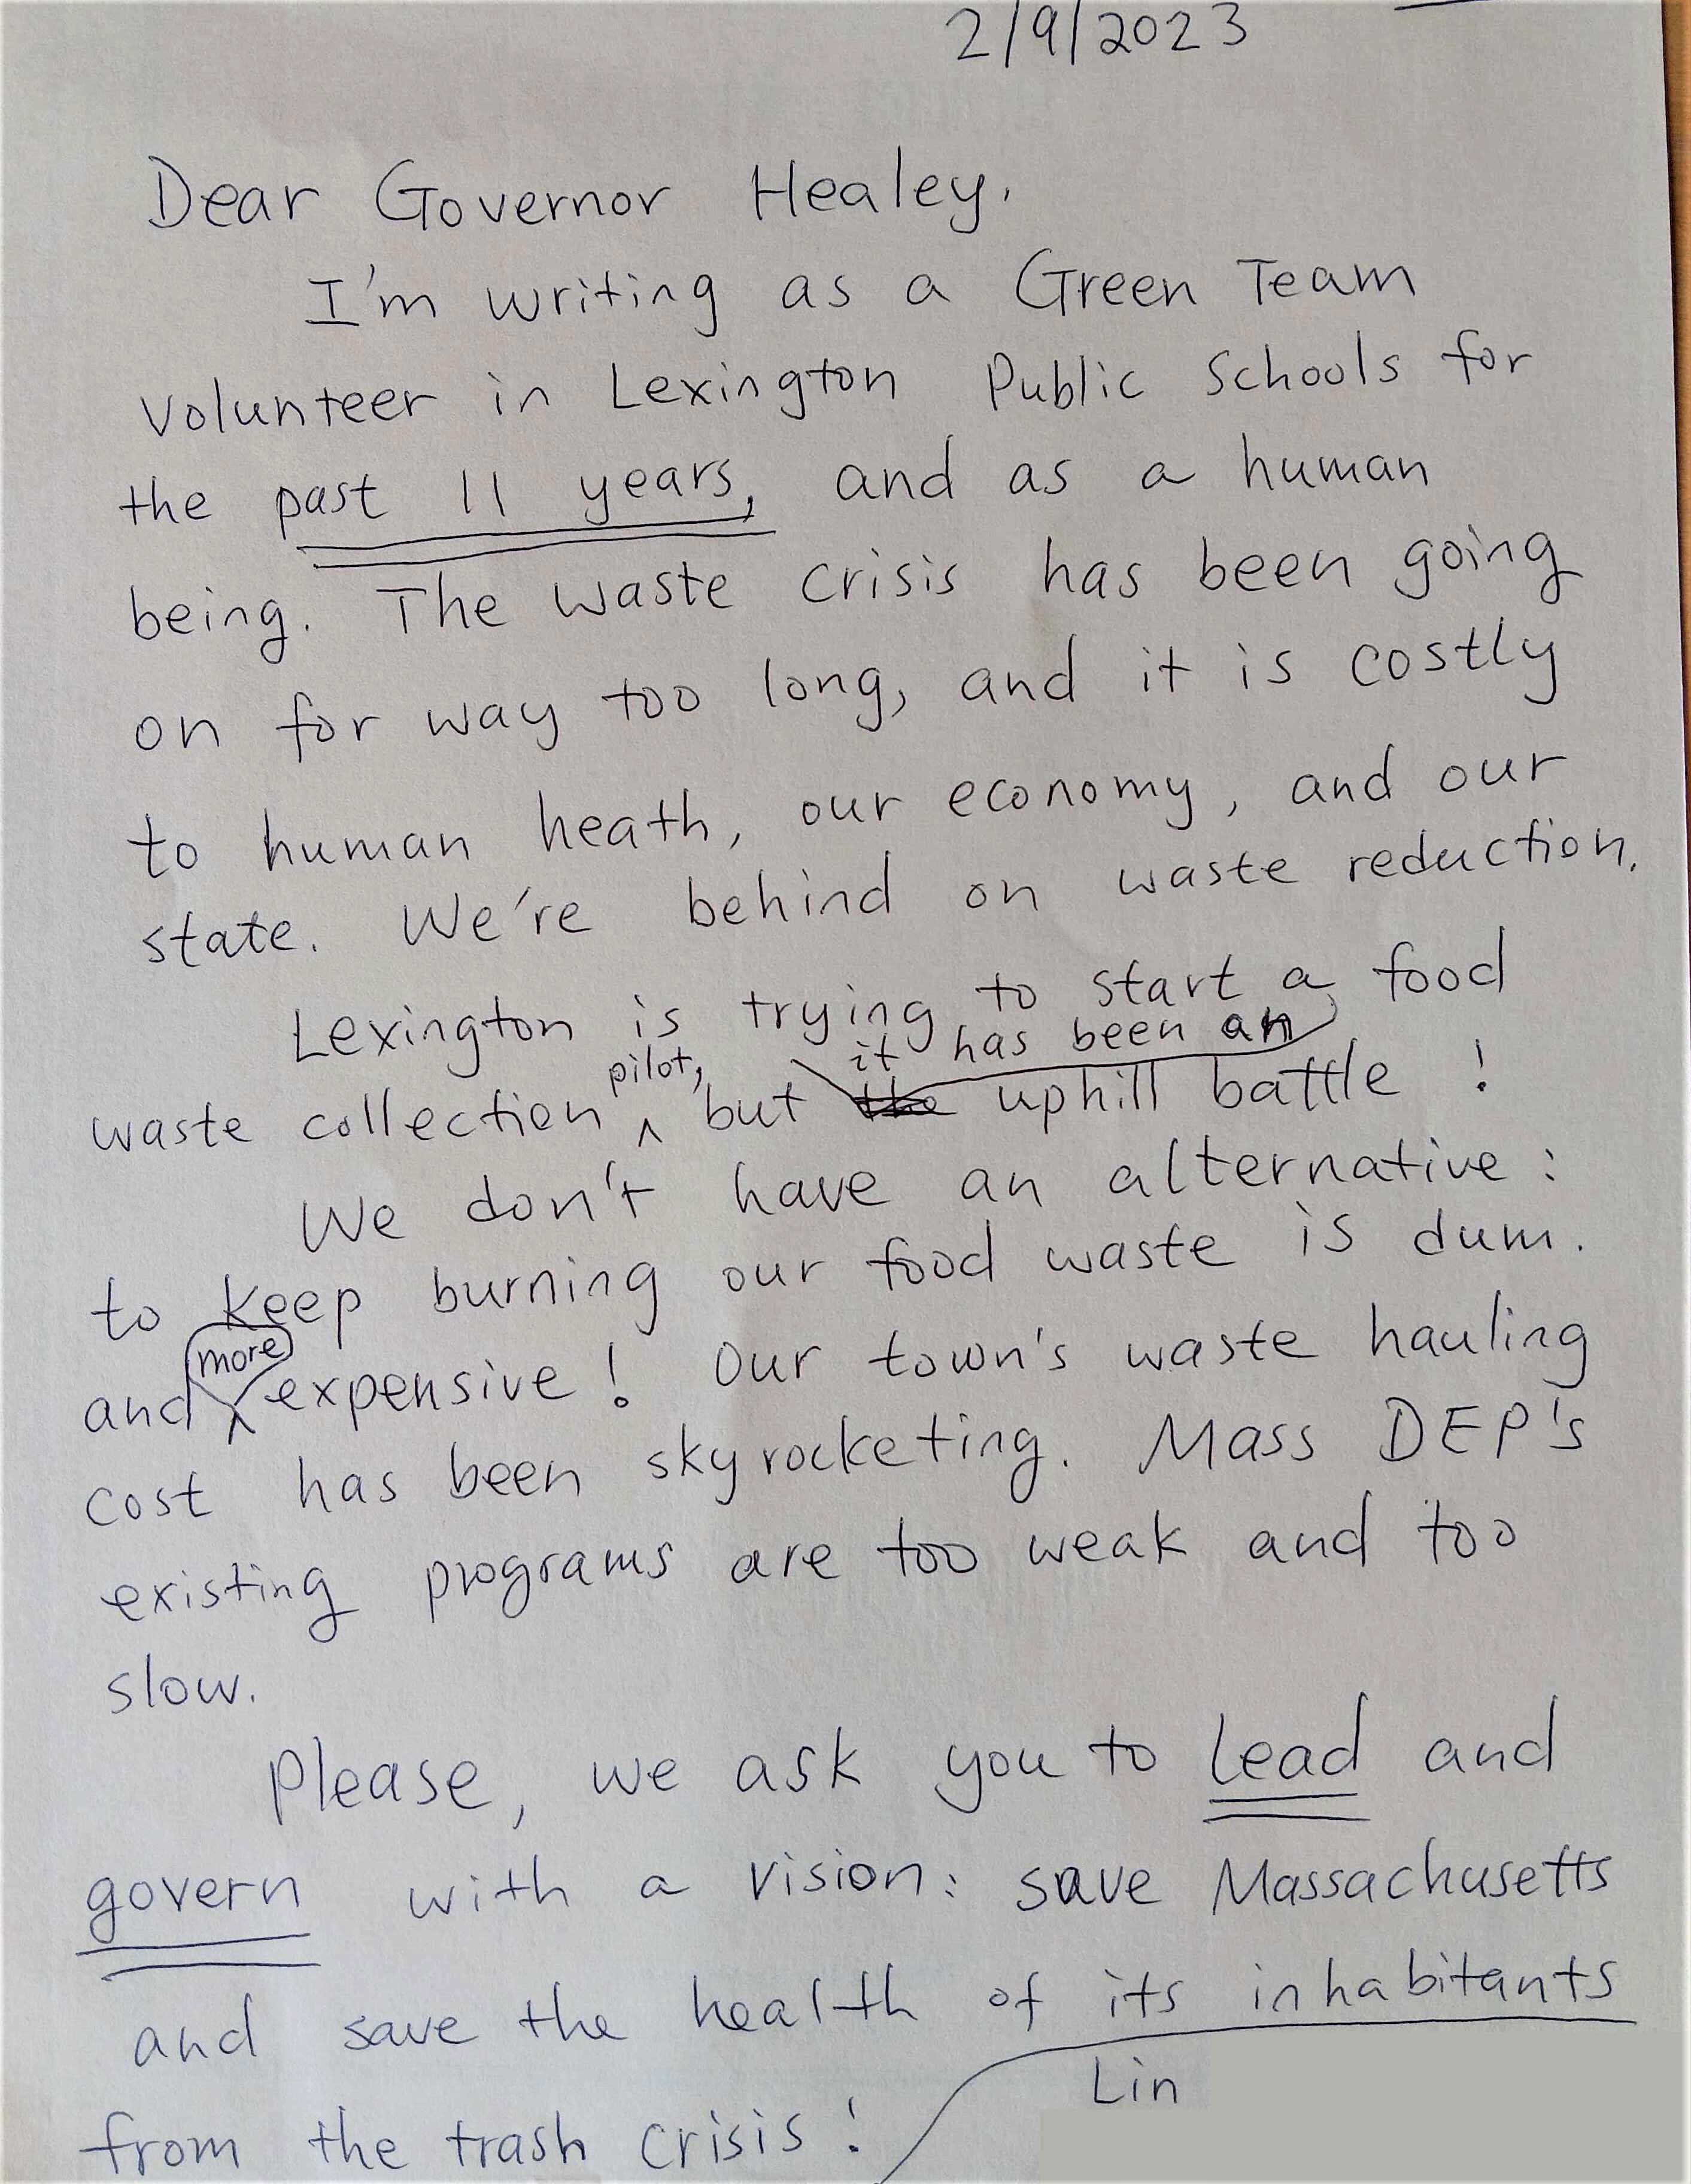 2/9/2023
Dear Governor Healey,
I'm writing as a Green Team
volunteer in Lexington Public Schools for
the past 11 years, and as a human
being. The waste crisis has been going
on for way too long, and it is costly
to human heath, our economy, and our
state. We're behind on waste reduction.
Lexington is trying to start a food
pilot, it has been an
waste collection ^ but the uphill battle !
We don't have an alternative :
to keep burning our food waste is dum.
more
and ^ expensive ! Our town's waste hauling
cost has been skyrocketing. Mass DEP's
existing programs are too weak and too
slow.
Please, we ask you to lead and
govern with a vision: save Massachusetts
and save the health of its inhabitants
Lin
from the trash crisis !